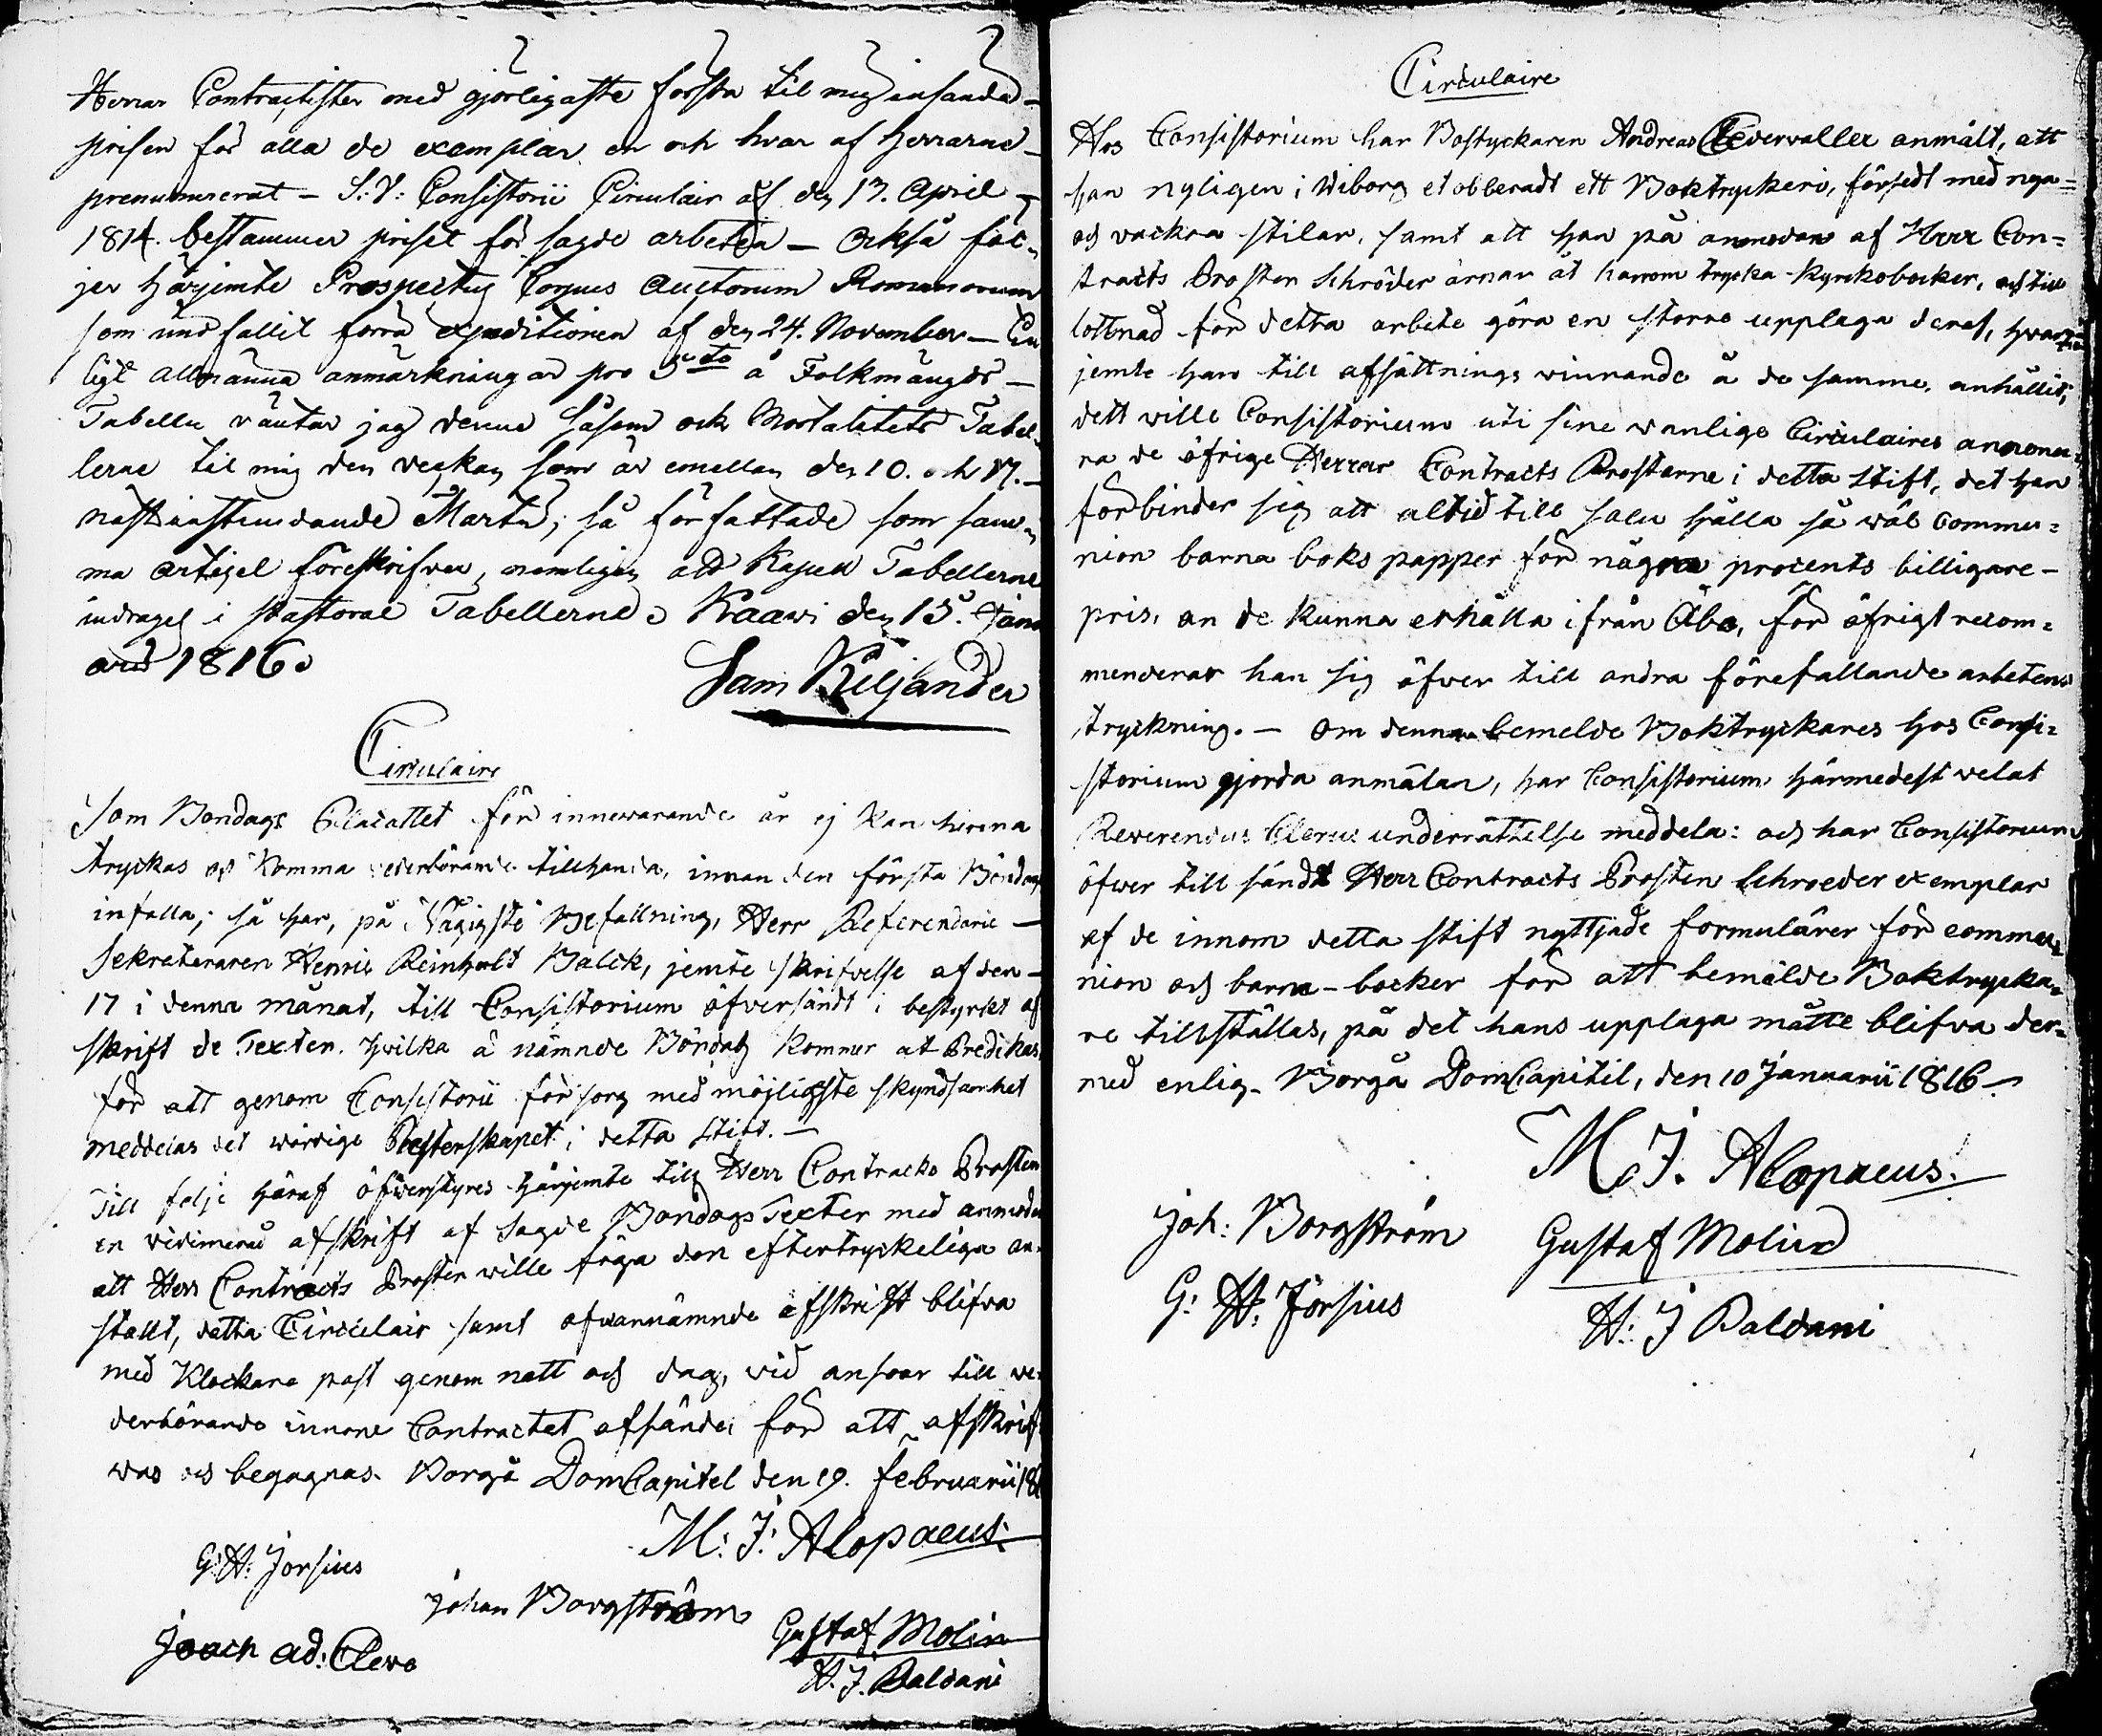 Herrar Contractister med gjörligaste första til mig insända
prisen för alla de exemplar en och hvar af Herrarne
prenumererat – S: V: Consistorii Circulair af den 13. April
1814. bestämmer priset för sagde arbeten – Också föl-
jer härjemte Prospectus Corpus Auctorum Romanorum
som undfallit förra expeditionen af den 24. November – En
ligt allmänna anmärkningar pro 5to å Folkmängds –
Tabellen väntar jag denne såsom och Mortalitets Tabel-
lerne til mig den veckan som är emellan den 10. och 17.
nästinstundande Martii, så författade som sam-
ma artigel föreskrifver, nemligen att Kapell Tabellerne
indragas i Pastorat Tabellerne. Kaavi den 15. Janu
arii 1816.
Sam Kiljander
Circulaire
Som Böndags Placattet för innewarande år ej kan hinna
tryckas och komma wederbörande tillhanda, innan den första Böndag
infalla; så har, på Nådigste Befallning, Herr Referendarie –
Sekreteraren Henric Reinholt Balck, jemte skrifvelse af den –
17 i denna månat, till Consistorium öfversändt i bestyrkt af
skrift de Texter, hvilka å nämnde Böndag kommer at Predikas
för att genom Consistorii försorg med möjligste skyndsamhet
meddelas det wördige Presterskapet i detta Stift. –
Till följe häraf öfwerstyres härjemte till Herr Contracts Prosten
en vidimerad afskrift af sagde Böndags Texter med anmodan
att Herr Contracts Prosten wille foga den eftertryckeliga an-
stallt, detta Circulair samt ofwannämnde afskrift blifva
med Klockare post genom natt och dag, wid answar till we-
derbörande innom Contractet afsände, för att afskrif
was och begagnas. Borgå DomCapitel den 19. februarii 18
M: J: Alopaeus
G: H: Forsius
Johan Borgström
Gustaf Molin
Joach ad: Cleve
H. J. Paldani
Circulaire
Hos Consistorium har Bostyckaren Andreas Cederwaller anmält, att
han nyligen i Wiborg etobleradt ett Boktryckeri, försedt med nya
och vackra stilar, samt att han på anmodan af Herr Con-
tracts Prosten Schröder ärnar åt honom trycka Kyrckobocker, och till
lottnad för detta arbete göra en större upplaga deraf, hvar
jemte han till afsättnings winnande å de samme, anhållit,
dett wille Consistorium uti sine wanlige Circulaires annonce-
ra de öfrige Herrar Contracts Prosterne i detta Stift, det han
förbinder sig att altid till salu hålla så wäl Commu-
nion barna boks papper för några procents billigare –
pris, än de kunna erhålla ifrån Åbo, för öfrigt recom-
menderar han sig öfver till andra förefallande arbetens
tryckning. – Om denna bemelde Boktryckares hos Consi-
storium gjorda anmälan, har Consistorium härmedelst velat
Reverendus Clerus underrättelse meddela: och har Consistorium
öfwer till sändt Herr Contracts Prosten Schroeder exemplar
af de innom detta stift nyttjade formulärer för commu-
nion och barn-bocker för att bemälde Boktrycka-
re tillställas, på det hans upplaga måtte blifva der-
med enlig. Borgå DomCapitel, den 10 Januarii 1816
M. J. Alopaeus.
Joh: Borgström
Gustaf Molin
G: H: Forsius
H: J Paldani